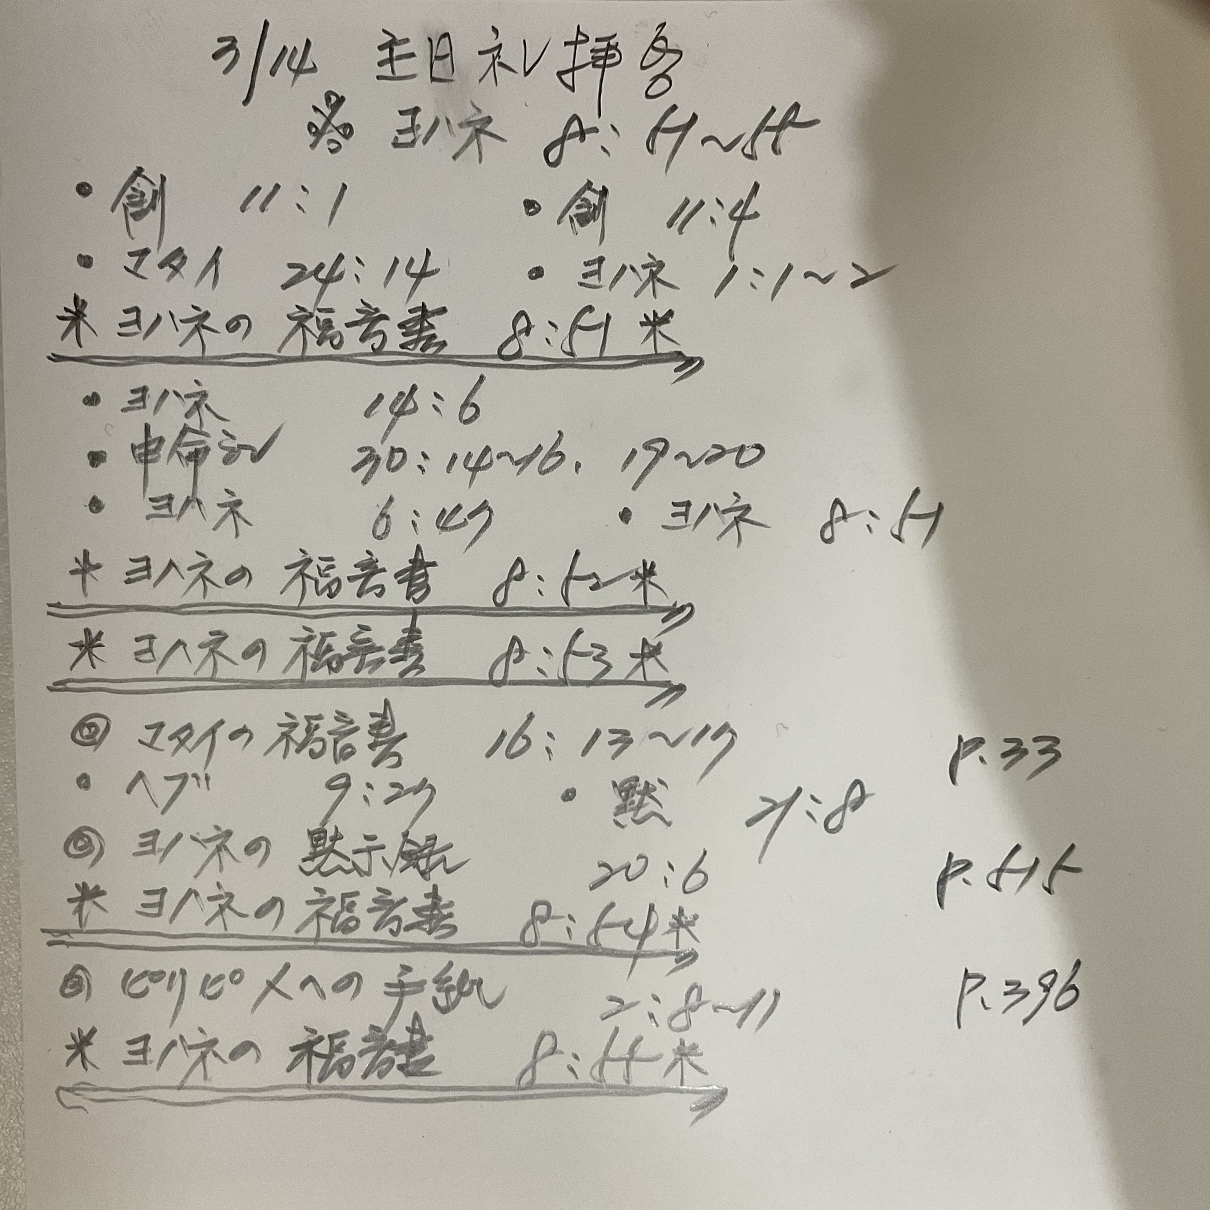 3/14 主日礼拝
※ ヨハネ 8:51~55
・創 11:1 ・創 11:4
・マタイ 24:14 ・ヨハネ 1:1~2
＊ヨハネの福音書 8:51＊
・ヨハネ 14:6
・申命記 30:14~16. 19~20
・ヨハネ 6:47 ・ヨハネ 8:51
＊ヨハネの福音書 8:52＊
＊ヨハネの福音書 8:53＊
◎マタイの福音書 16:13~17 P.33
・ヘブ 9:27 ・黙 21:8
◎ヨハネの黙示録 20:6 P.515
＊ヨハネの福音書 8:54＊
◎ピリピ人への手紙 2:8~11 P.396
＊ヨハネの福音書 8:55＊